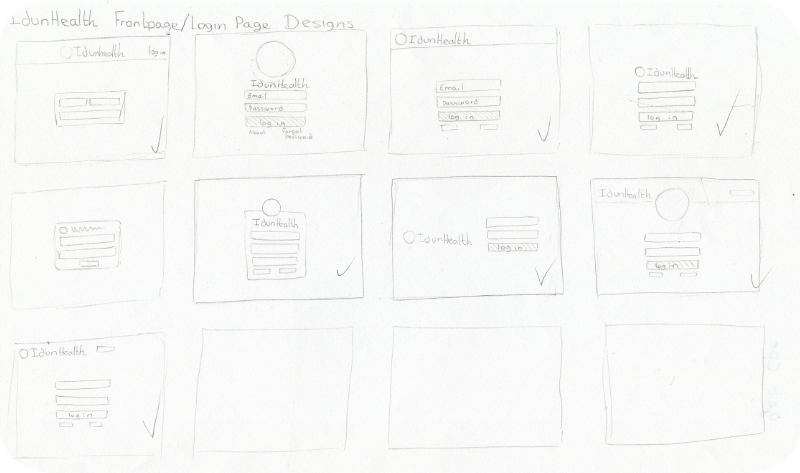 IdunHealth Frontpage/Login Page Designs
IdunHealth log in
IdunHealth
Email
Password
log in
About Forgot
Password
IdunHealth
Email
Password
log in
IdunHealth
log in
IdunHealth
IdunHealth
log in
IdunHealth
log in
IdunHealth
log in